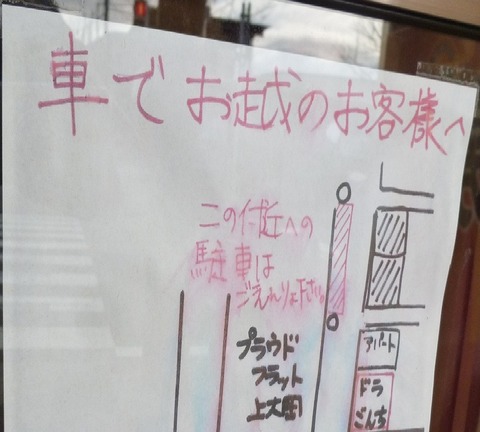 車でお越のお客様へ
この付近への
駐車は
ごえんりょ下さい。
アパート
プラウド
フラット
上大岡
ドラ
ごんち